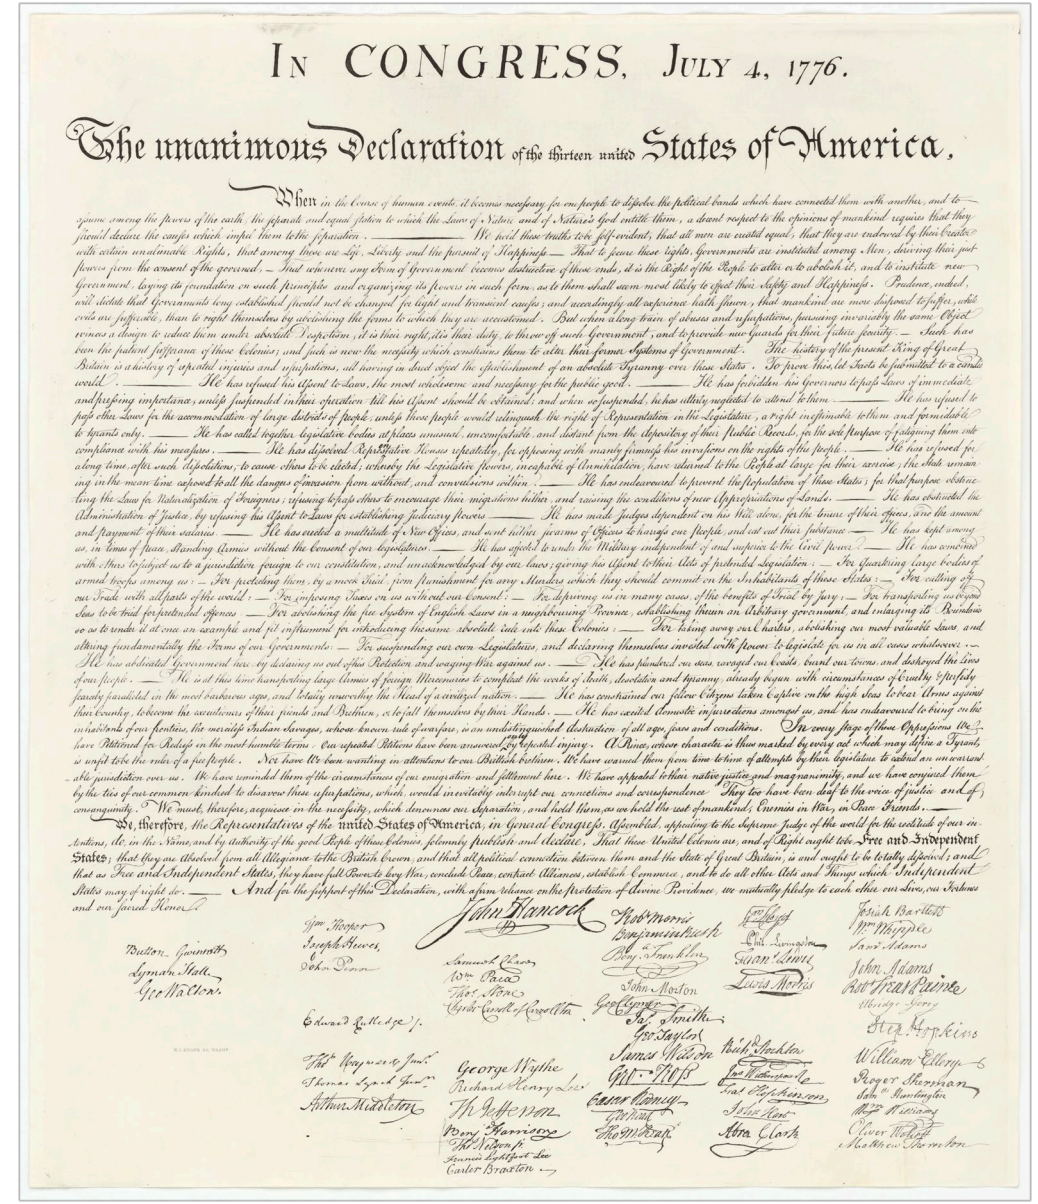 IN CONGRESS, JULY 4, 1776.
The unanimous Declaration of the thirteen united States of America.
When in the Course of human events, it becomes necessary for one people to dissolve the political bands which have connected them with another, and to
assume among the powers of the earth, the separate and equal station to which the Laws of Nature and of Nature's God entitle them, a decent respect to the opinions of mankind requires that they
should declare the causes which impel them to the separation. — We hold these truths to be self-evident, that all men are created equal, that they are endowed by their Creator
with certain unalienable Rights, that among these are Life, Liberty and the pursuit of Happiness — That to secure these rights, Governments are instituted among Men, deriving their just
powers from the consent of the governed, — That whenever any Form of Government becomes destructive of these ends, it is the Right of the People to alter or to abolish it, and to institute new
Government, laying its foundation on such principles and organizing its powers in such form, as to them shall seem most likely to effect their Safety and Happiness. Prudence, indeed,
will dictate that Governments long established should not be changed for light and transient causes; and accordingly all experience hath shewn, that mankind are more disposed to suffer, while
evils are sufferable, than to right themselves by abolishing the forms to which they are accustomed. But when a long train of abuses and usurpations, pursuing invariably the same Object
evinces a design to reduce them under absolute Despotism, it is their right, it is their duty, to throw off such Government, and to provide new Guards for their future security. — Such has
been the patient sufferance of these Colonies; and such is now the necessity which constrains them to alter their former Systems of Government. The history of the present King of Great
Britain is a history of repeated injuries and usurpations, all having in direct object the establishment of an absolute Tyranny over these States. To prove this, let Facts be submitted to a candid
world. — He has refused his Assent to Laws, the most wholesome and necessary for the public good. — He has forbidden his Governors to pass Laws of immediate
and pressing importance, unless suspended in their operation till his Assent should be obtained; and when so suspended, he has utterly neglected to attend to them. — He has refused to
pass other Laws for the accommodation of large districts of people, unless those people would relinquish the right of Representation in the Legislature, a right inestimable to them and formidable
to tyrants only. — He has called together legislative bodies at places unusual, uncomfortable, and distant from the depository of their Public Records, for the sole purpose of fatiguing them into
compliance with his measures. — He has dissolved Representative Houses repeatedly, for opposing with manly firmness his invasions on the rights of the people. — He has refused for
a long time, after such dissolutions, to cause others to be elected; whereby the Legislative powers, incapable of Annihilation, have returned to the People at large for their exercise; the State remain
ing in the mean time exposed to all the dangers of invasion from without, and convulsions within. — He has endeavoured to prevent the population of these States; for that purpose obstruc
ting the Laws for Naturalization of Foreigners; refusing to pass others to encourage their migrations hither, and raising the conditions of new Appropriations of Lands. — He has obstructed the
Administration of Justice, by refusing his Assent to Laws for establishing Judiciary powers — He has made Judges dependent on his Will alone, for the tenure of their offices, and the amount
and payment of their salaries. — He has erected a multitude of New Offices, and sent hither swarms of Officers to harrass our People, and eat out their substance. — He has kept among
us, in times of peace, Standing Armies without the Consent of our legislatures. — He has affected to render the Military independent of and superior to the Civil power. — He has combined
with others to subject us to a jurisdiction foreign to our constitution, and unacknowledged by our laws; giving his Assent to their Acts of pretended Legislation: — For Quartering large bodies of
armed troops among us: — For protecting them, by a mock Trial, from punishment for any Murders which they should commit on the Inhabitants of these States: — For cutting off
our Trade with all parts of the world: — For imposing Taxes on us without our Consent: — For depriving us in many cases, of the benefits of Trial by Jury: — For transporting us beyond
Seas to be tried for pretended offences — For abolishing the free System of English Laws in a neighbouring Province, establishing therein an Arbitrary government, and enlarging its Boundaries
so as to render it at once an example and fit instrument for introducing the same absolute rule into these Colonies: — For taking away our Charters, abolishing our most valuable Laws, and
altering fundamentally the Forms of our Governments: — For suspending our own Legislatures, and declaring themselves invested with power to legislate for us in all cases whatsoever. —
He has abdicated Government here, by declaring us out of his Protection and waging War against us. — He has plundered our seas, ravaged our Coasts, burnt our towns, and destroyed the lives
of our people. — He is at this time transporting large Armies of foreign Mercenaries to compleat the works of death, desolation and tyranny, already begun with circumstances of Cruelty & perfidy
scarcely paralleled in the most barbarous ages, and totally unworthy the Head of a civilized nation. — He has constrained our fellow Citizens taken Captive on the high Seas to bear Arms against
their Country, to become the executioners of their friends and Brethren, or to fall themselves by their Hands. — He has excited domestic insurrections amongst us, and has endeavoured to bring on the
inhabitants of our frontiers, the merciless Indian Savages, whose known rule of warfare, is an undistinguished destruction of all ages, sexes and conditions. In every stage of these Oppressions We
have Petitioned for Redress in the most humble terms: Our repeated Petitions have been answered only by repeated injury. A Prince, whose character is thus marked by every act which may define a Tyrant,
is unfit to be the ruler of a free people. Nor have We been wanting in attentions to our Brittish brethren. We have warned them from time to time of attempts by their legislature to extend an unwarrant
able jurisdiction over us. We have reminded them of the circumstances of our emigration and settlement here. We have appealed to their native justice and magnanimity, and we have conjured them
by the ties of our common kindred to disavow these usurpations, which, would inevitably interrupt our connections and correspondence They too have been deaf to the voice of justice and of
consanguinity. We must, therefore, acquiesce in the necessity, which denounces our Separation, and hold them, as we hold the rest of mankind, Enemies in War, in Peace Friends. —
We, therefore, the Representatives of the united States of America, in General Congress, Assembled, appealing to the Supreme Judge of the world for the rectitude of our in-
tentions, do, in the Name, and by Authority of the good People of these Colonies, solemnly publish and declare, That these United Colonies are, and of Right ought to be Free and Independent
States; that they are Absolved from all Allegiance to the British Crown, and that all political connection between them and the State of Great Britain, is and ought to be totally dissolved; and
that as Free and Independent States, they have full Power to levy War, conclude Peace, contract Alliances, establish Commerce, and to do all other Acts and Things which Independent
States may of right do. — And for the support of this Declaration, with a firm reliance on the protection of divine Providence, we mutually pledge to each other our Lives, our Fortunes
and our sacred Honor.
Button Gwinnett
Lyman Hall
Geo Walton.
Wm Hooper
Joseph Hewes,
John Penn
Edward Rutledge /.
Thos Heyward Junr.
Thomas Lynch Junr.
Arthur Middleton
John Hancock
Samuel Chase
Wm Paca
Thos Stone
Charles Carroll of Carrollton
George Wythe
Richard Henry Lee
Th Jefferson
Benj Harrison
Thos Nelson jr.
Francis Lightfoot Lee
Carter Braxton
Robt Morris
Benjamin Rush
Benj. Franklin
John Morton
Geo Clymer
Jas. Smith
Geo. Taylor
James Wilson
Geo. Ross
Caesar Rodney
Geo Read
Tho M:Kean
Wm Floyd
Phil. Livingston
Frans. Lewis
Lewis Morris
Richd. Stockton
Jno Witherspoon
Fras. Hopkinson
John Hart
Abra Clark
Josiah Bartlett
Wm. Whipple
Saml Adams
John Adams
Robt Treat Paine
Elbridge Gerry
Step. Hopkins
William Ellery
Roger Sherman
Saml Huntington
Wm Williams
Oliver Wolcott
Matthew Thornton